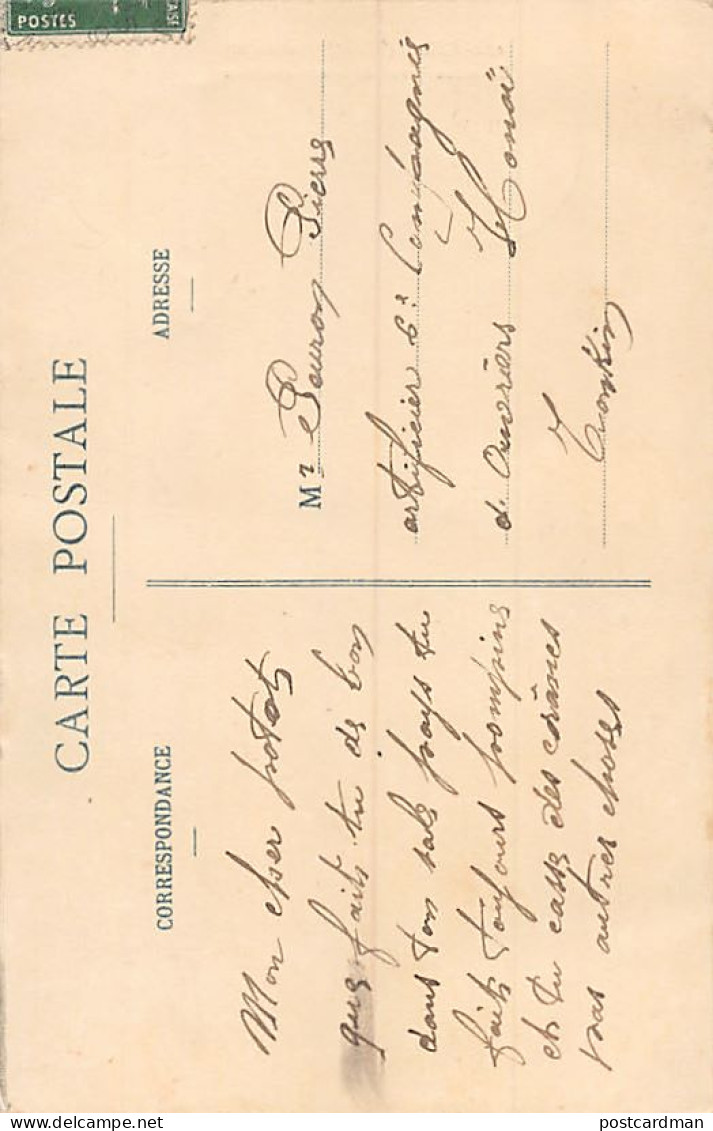 POSTES
CARTE POSTALE
CORRESPONDANCE
Mon cher potot
que faits tu de bon
dans ton sale pays tu
faits toujours pompins
et tu casse des crânes
pas autres choses
ADRESSE
Mr Pouron Pierre
artificier 6e Compagnie
d'Ouvriers Hanoï
Tonkin
postcardman